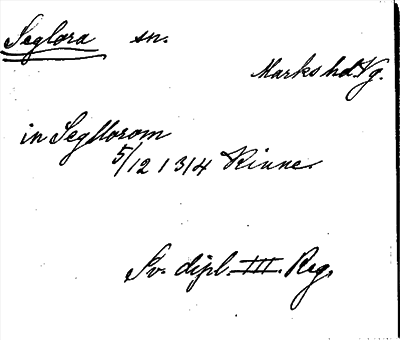 Seglora sn.
Marks hd Vg.
in Segllorom
5/12 1314 Rinne
Sv. dipl. III. Reg.